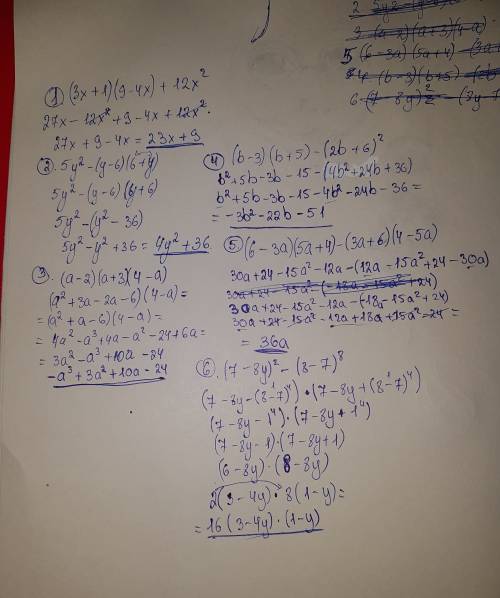 2 5y2-(y-6)(
3 (a-2)(a+3)(4-a)
5 (6-3a)(5a+4)-(3a+
4 (b-3)(b+5)-(2b
6. (7-8y)² - (8y-7
① (3x+1)(9-4x)+12x²
27x-12x²+9-4x+12x².
27x+9-4x=23x+9
②. 5y²-(y-6)(6+y)
5y²-(y-6)(y+6)
5y²-(y²-36)
5y²-y²+36=4y²+36.
③. (a-2)(a+3)(4-a)
(a²+3a-2a-6)(4-a)=
=(a²+a-6)(4-a)=
=4a²-a³+4a-a²-24+6a=
=3a²-a³+10a-24
-a³+3a²+10a-24
④ (b-3)(b+5)-(2b+6)²
b²+5b-3b-15-(4b²+24b+36)
b²+5b-3b-15-4b²-24b-36=
=-3b²-22b-51
⑤ (6-3a)(5a+4)-(3a+6)(4-5a)
30a+24-15a²-12a-(12a-15a²+24-30a)
30a+24-15a²-(-18a-15a²+24)
30a+24-15a²-12a-(-18a-15a²+24)
30a+24-15a²-12a+18a+15a²-24=
=36a
⑥ (7-8y)²-(8-7)⁸
(7-8y-(8-7)⁴)·(7-8y+(8-7)⁴)
(7-8y-1⁴)·(7-8y+1⁴)
(7-8y-1)·(7-8y+1)
(6-8y)·(8-8y)
2(3-4y)·8(1-y)=
=16(3-4y)·(1-y)